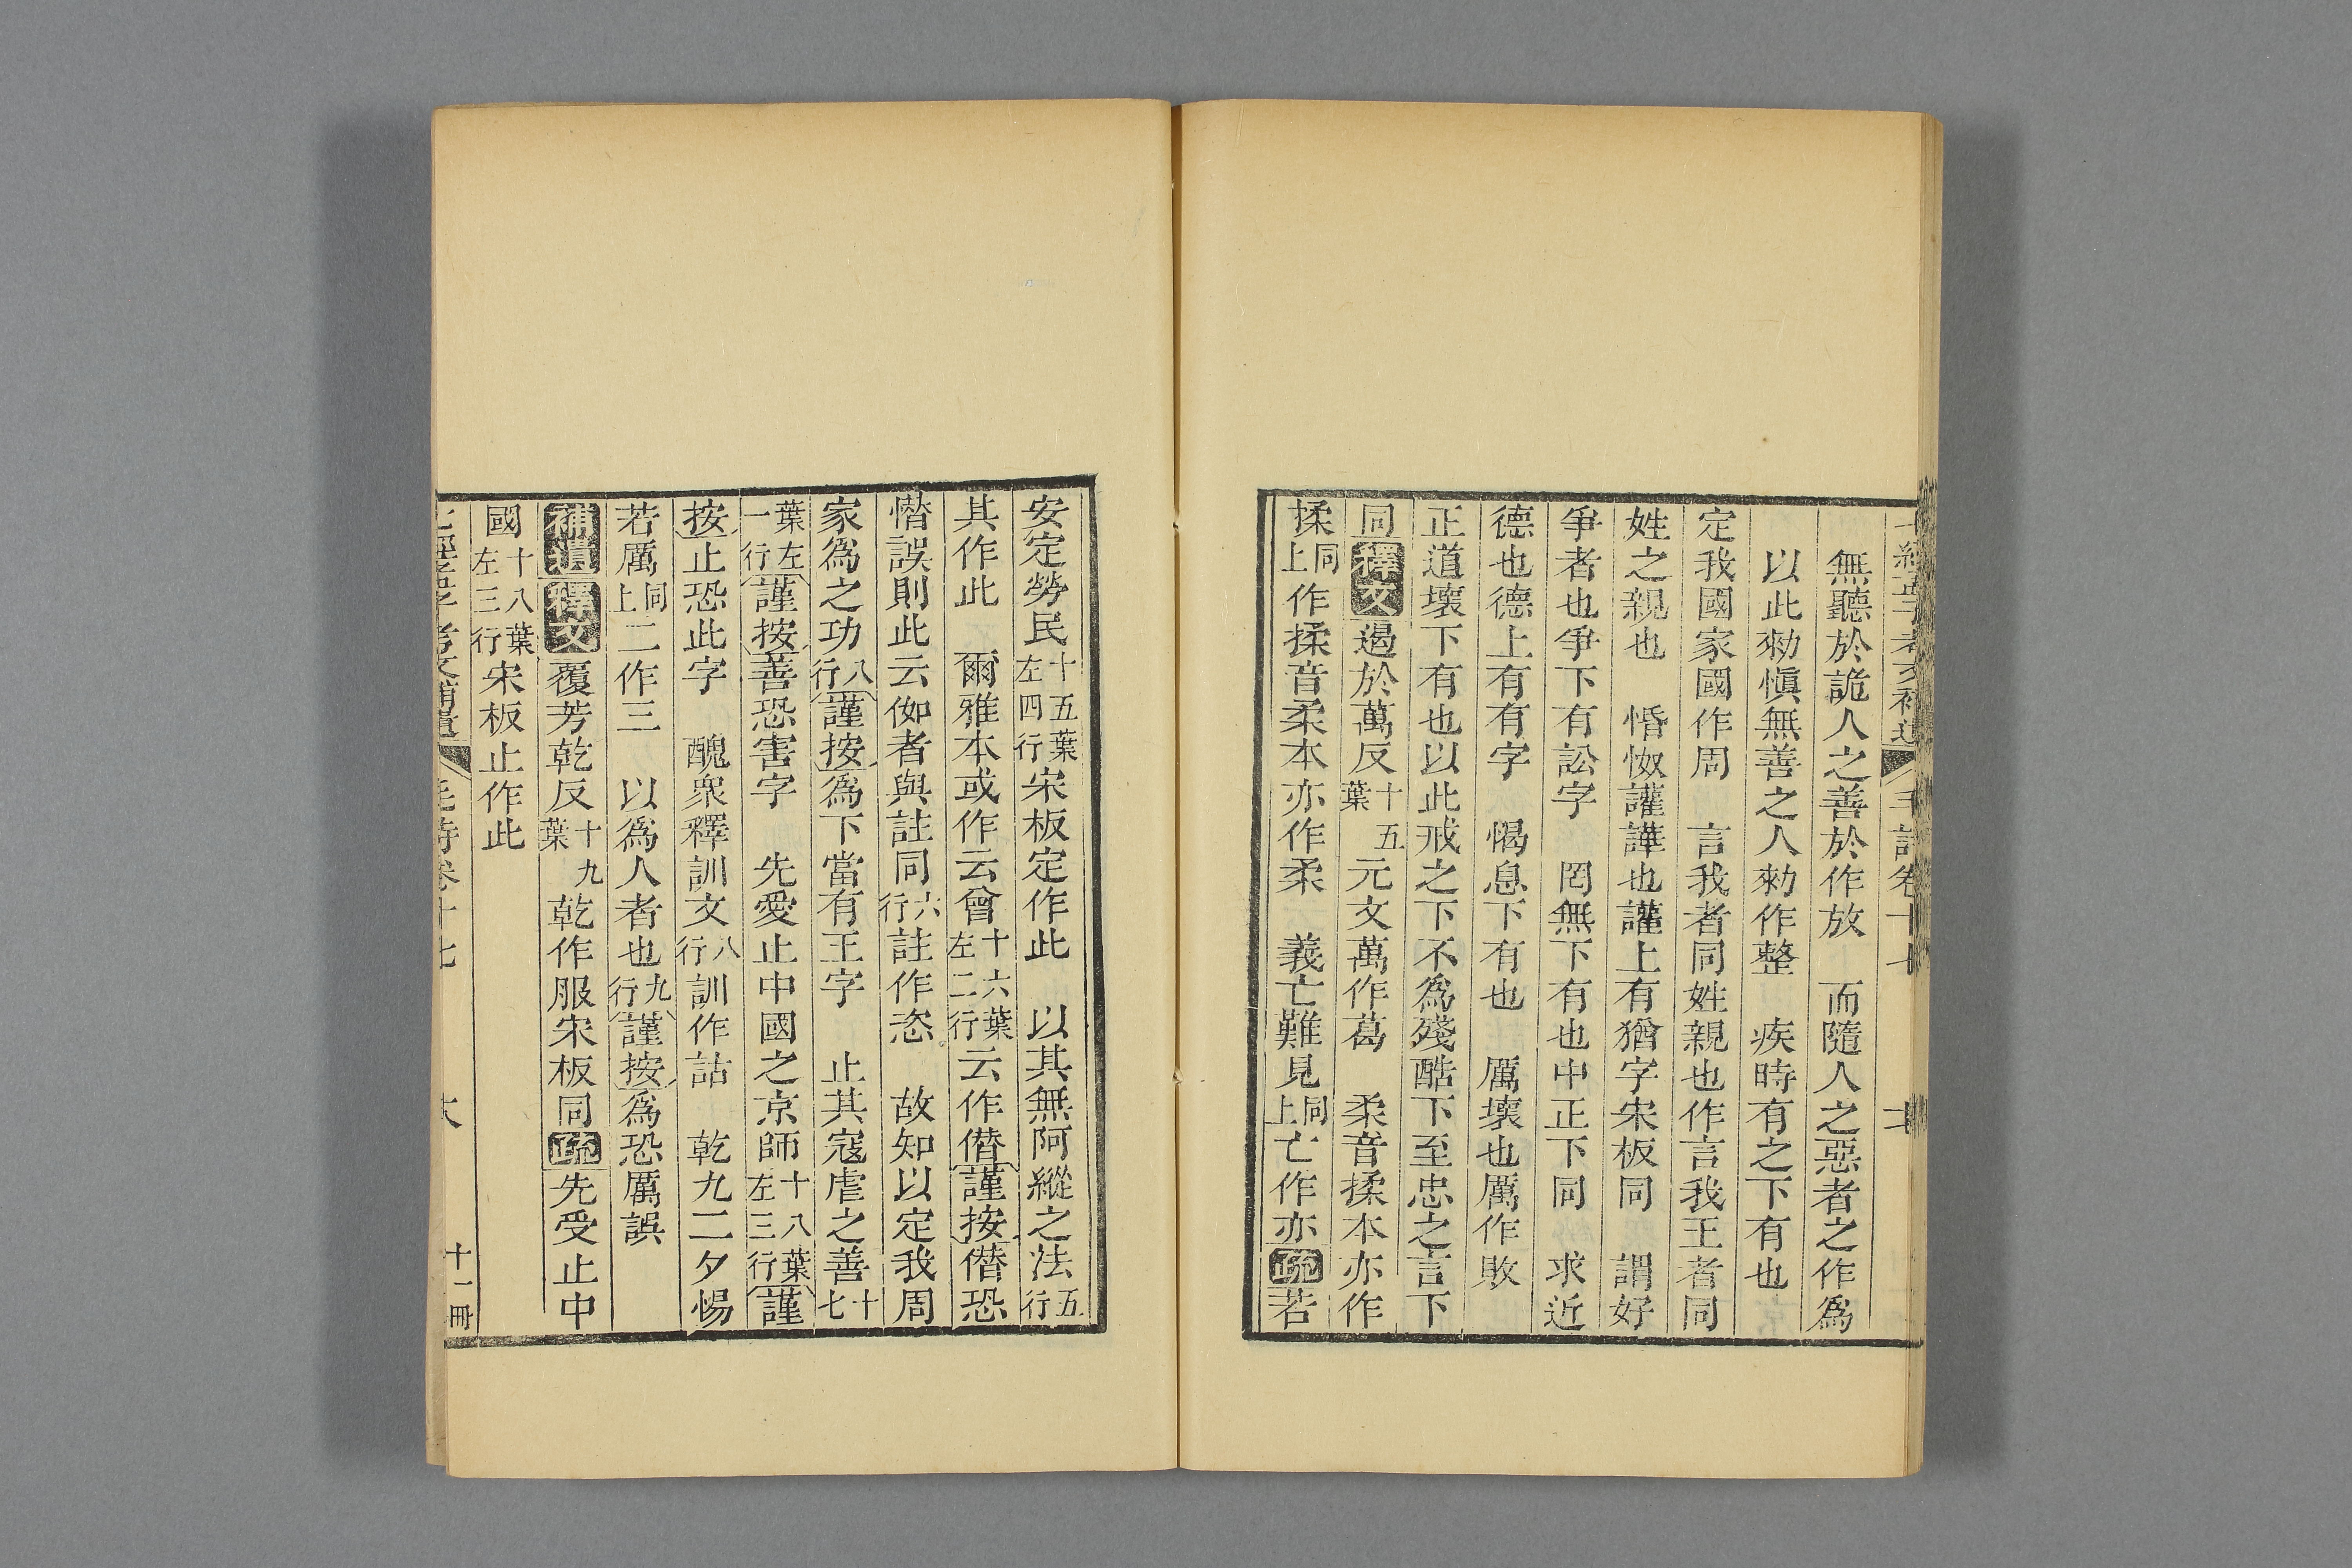 七經孟子考文補遺 毛詩卷十七
無聽於詭人之善於作放　而隨人之惡者之作爲
以此勑愼無善之人勑作整　疾時有之下有也
定我國家國作周　言我者同姓親也作言我王者同
姓之親也　惛怓讙譁也讙上有猶字宋板同　謂好
爭者也爭下有訟字　罔無下有也中正下同　求近
德也德上有有字　愒息下有也　厲壞也厲作敗
正道壞下有也以此戒之下不爲殘酷下至忠之言下
同釋文遏於萬反十五葉元文萬作葛　柔音揉本亦作
揉同上作揉音柔本亦作柔　義亡難見同上亡作亦疏若
安定勞民十五葉左四行宋板定作此　以其無阿縱之法五行
其作此　爾雅本或作云曾十六葉左二行云作僭謹按僭恐
憯誤則此云伽者與註同六行註作恣　故知以定我周
家爲之功八行謹按爲下當有王字　止其寇虐之善十七
葉左一行謹按善恐害字　先愛止中國之京師十八葉左三行謹
按止恐此字　醜衆釋訓文八行訓作詁　乾九二夕惕
若厲同上二作三　以爲人者也九行謹按爲恐厲誤
補遺釋文覆芳乾反十九葉乾作服宋板同疏先受止中
國十八葉左三行宋板止作此
七經孟子考文補遺 毛詩卷十七 十一冊